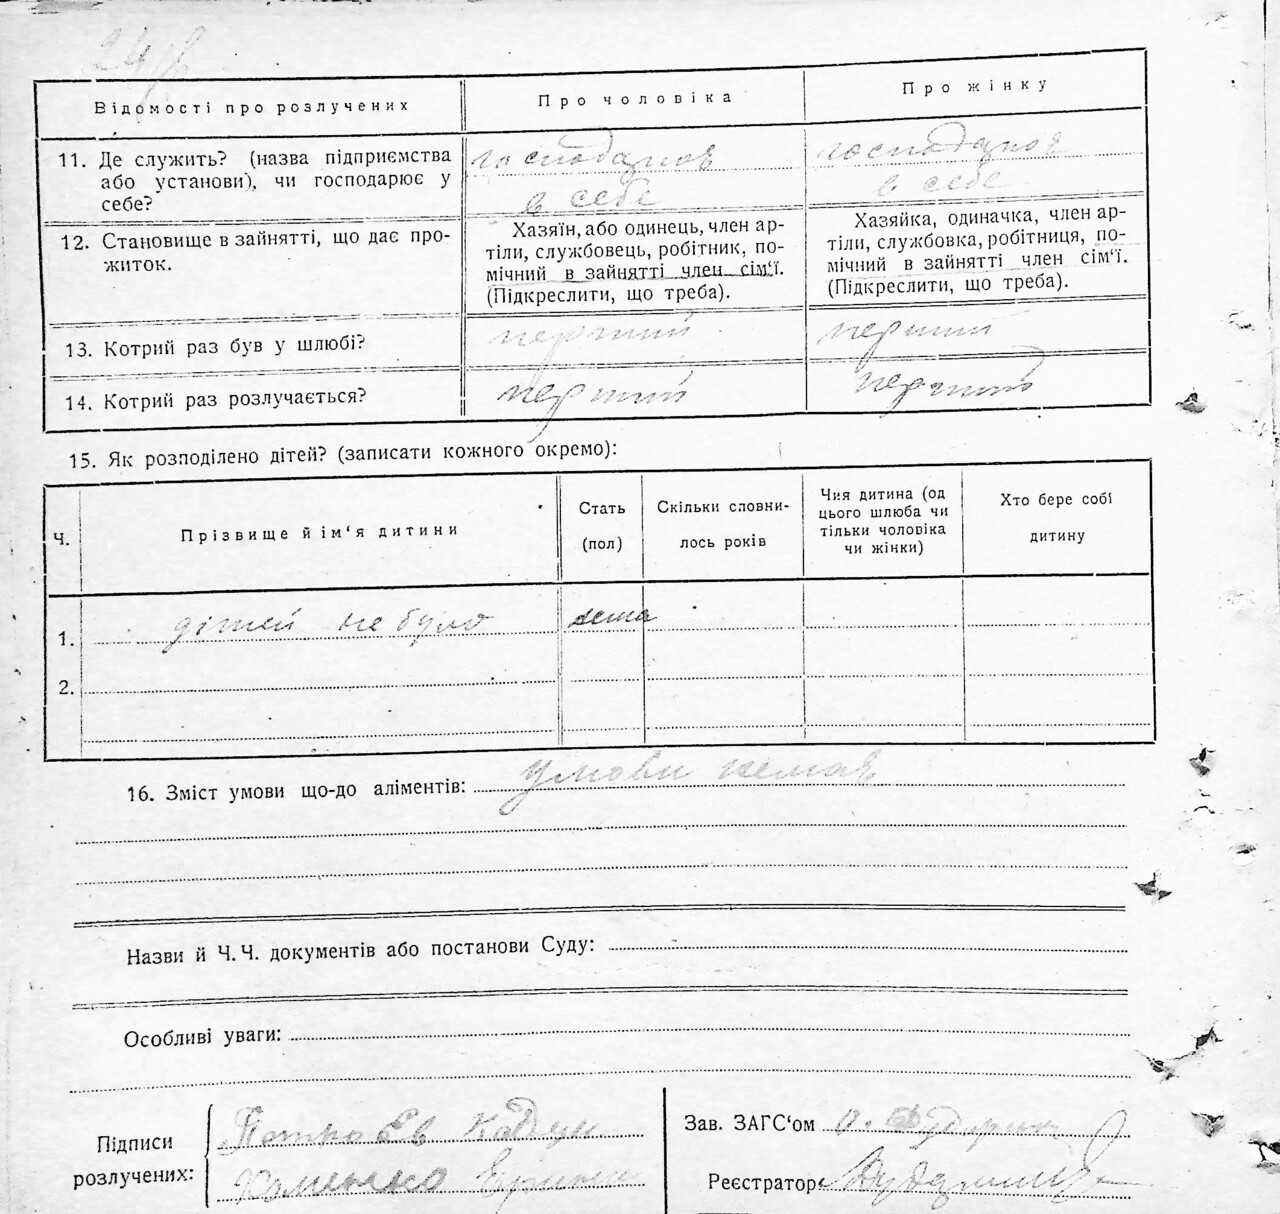 Відомості про розлучених
Про чоловіка
Про жінку
11. Де служить? (назва підприємства
або установи), чи господарює у
себе?
господарює
в себе
господарює
в себе
12. Становище в зайнятті, що дає про-
житок.
Хазяїн, або одинець, член ар-
тіли, службовець, робітник, по-
мічний в зайнятті член сім'ї.
(Підкреслити, що треба).
Хазяйка, одиначка, член ар-
тіли, службовка, робітниця, по-
мічний в зайнятті член сім'ї.
(Підкреслити, що треба).
13. Котрий раз був у шлюбі?
перший
перший
14. Котрий раз розлучається?
перший
перший
15. Як розподілено дітей? (записати кожного окремо):
Ч.
Прізвище й ім'я дитини
Стать
(пол)
Скільки сповни-
лось років
Чия дитина (од
цього шлюба чи
тільки чоловіка
чи жінки)
Хто бере собі
дитину
1. дітей не було нема
2.
16. Зміст умови що-до аліментів: умови немає
Назви й Ч.Ч. документів або постанови Суду:
Особливі уваги:
Підписи
розлучених:
Зав. ЗАГС'ом
Реєстратор